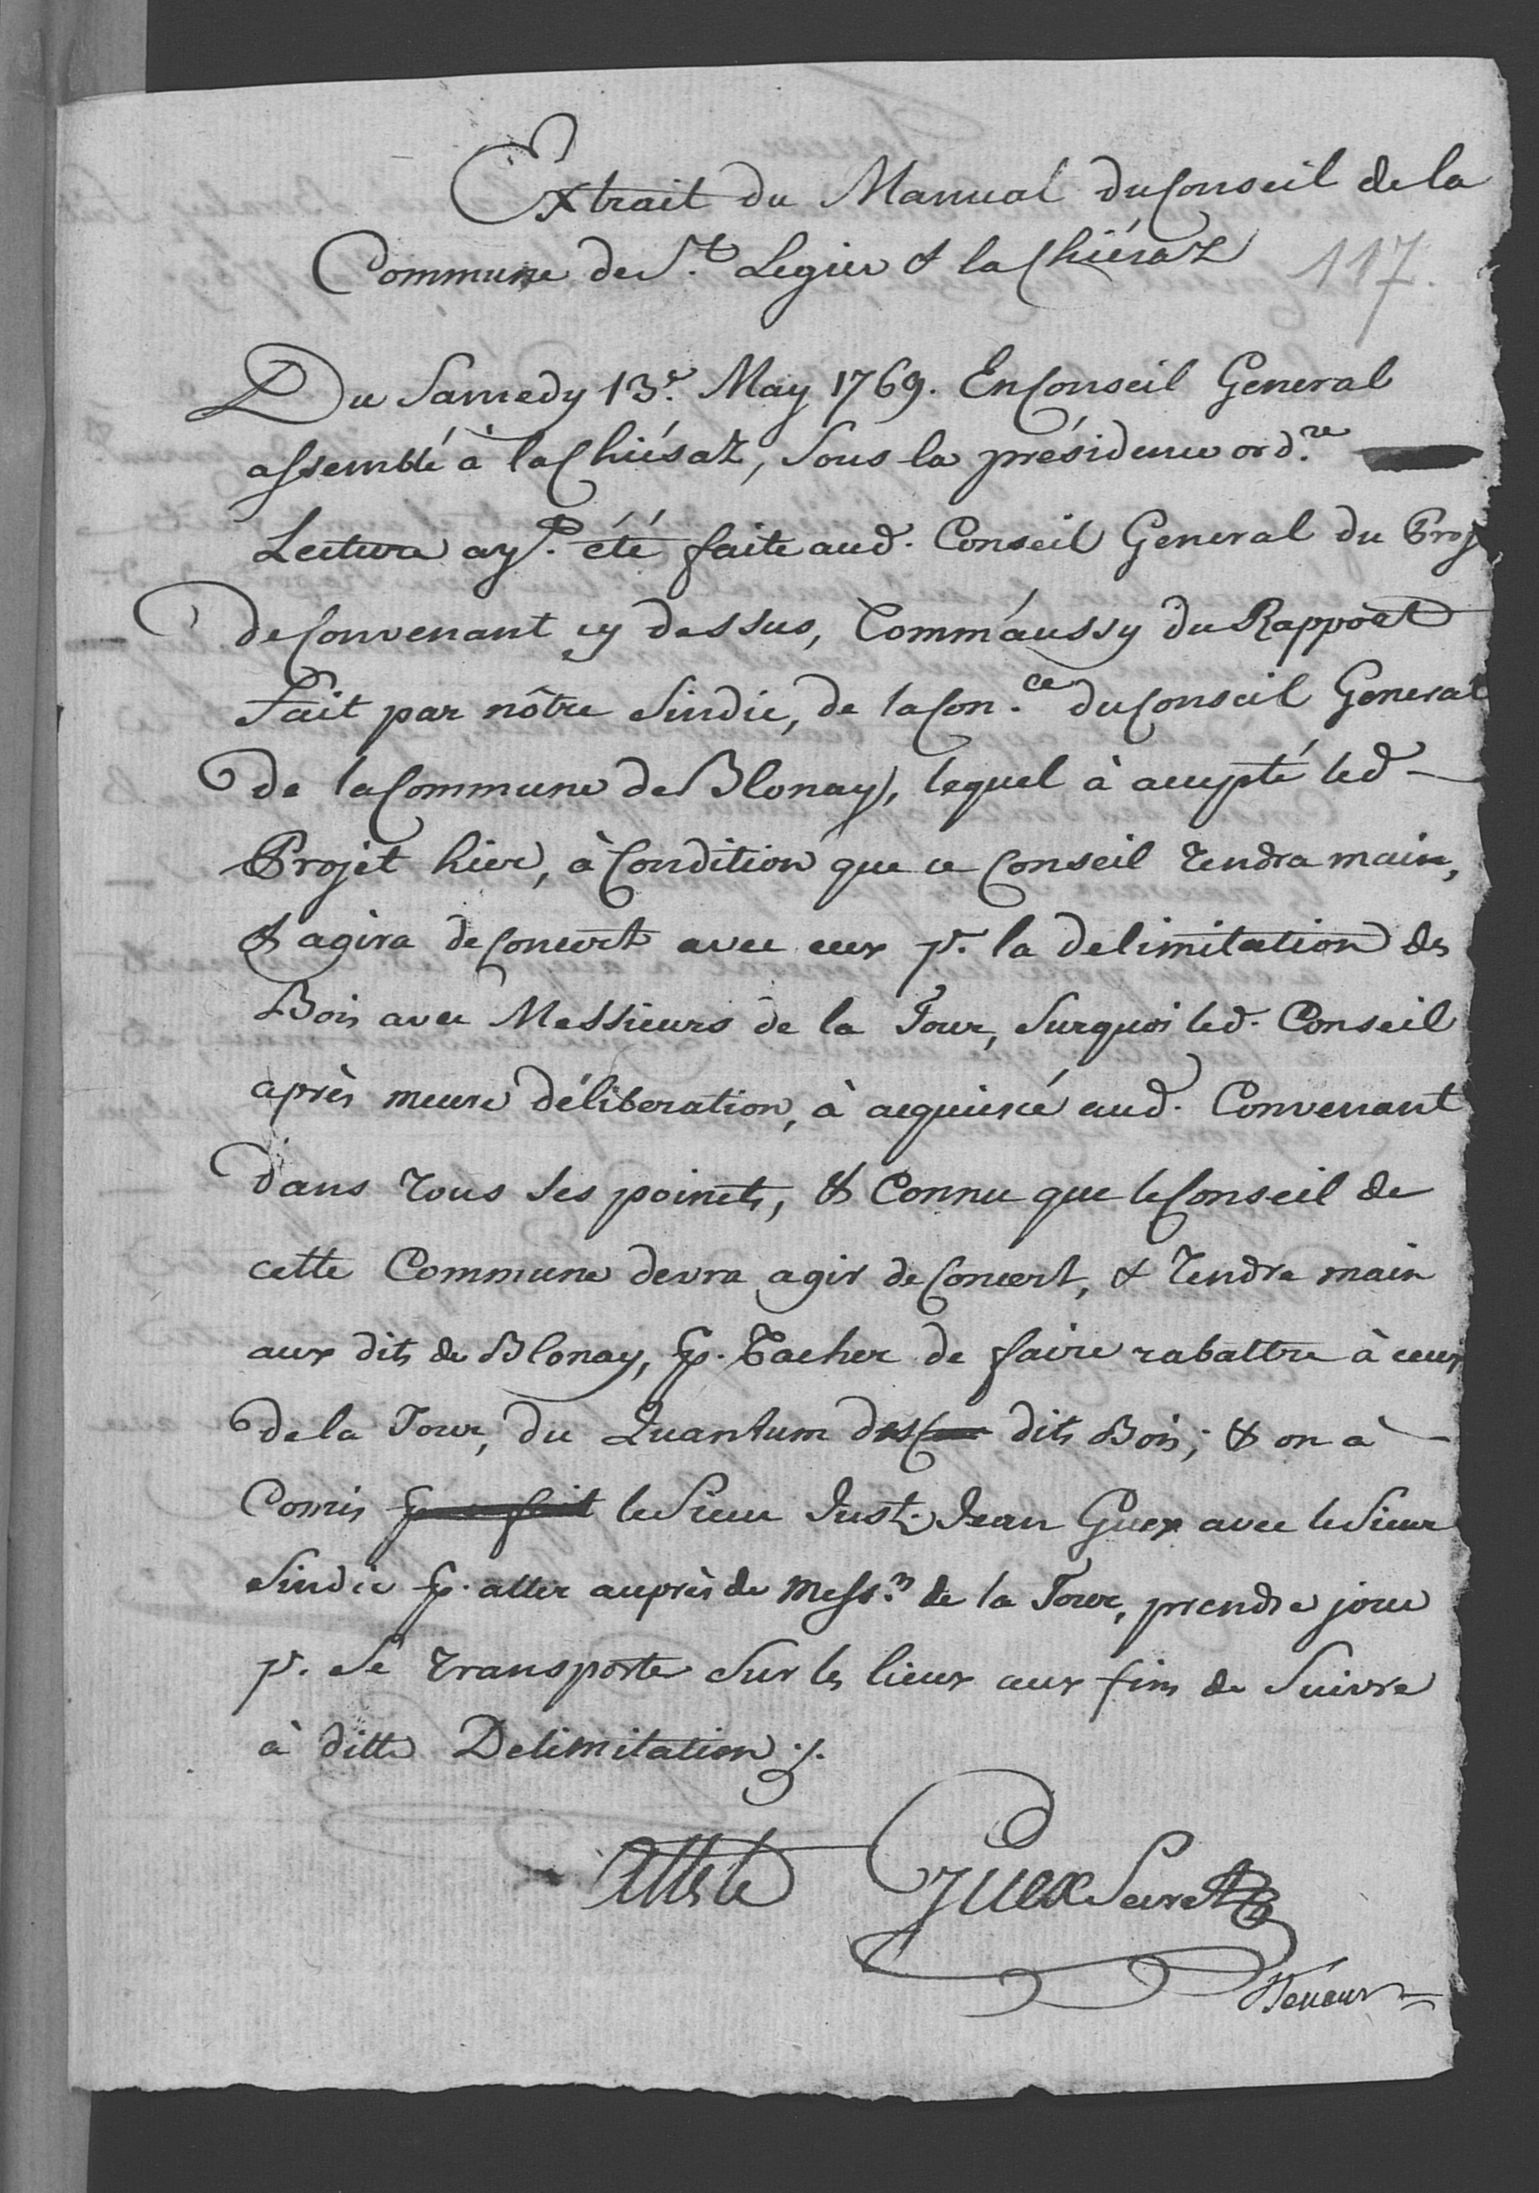 Extrait du Manual du Conseil de la
Commune de S.t Legier & la Chiésaz 117.
Du Samedy 13.e May 1769. En Conseil General
assemblé à la Chiésaz, Sous la présidence ord.re
Lecture ay.t été faite aud. Conseil General du Proj
de Convenant cy dessus, Comm'aussy du Rapport
Fait par nôtre Sindic, de la Con.ce du Conseil General
de la Commune de Blonay, lequel à accepté led
Projet hier, à Condition que ce Conseil tendra main,
& agira de Concert avec eux p.r la delimitation des
Bois avec Messieurs de la Tour, Surquoi led. Conseil
après meure déliberation, à acquiescé aud. Convenant
dans tous ses points, & Connu que le Conseil de
cette Commune devra agir de Concert, & tendre main
aux dits de Blonay, p. Tacher de faire rabattre à ceux
de la Tour, du Quantum des dits Bois; & on à
Comis le Sieur Just. Jean Guex avec le Sieur
Sindic p. aller auprès de Mess.rs de la Tour, prendre jour
p.r Se transporter Sur les lieux aux fins de Suivre
à ditte Delimitation ./.
Atteste Guex Secret
Teneur